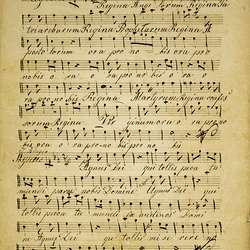 Regina Ange lorum Regina Pa
triarcharum Regina Prophetarum Regina A
postolorum ora pro no bis ora pro
nobis o ra o ra pro no bis o ra o
ra pro no bis Regina Martyrum Regina confes
sorum Regina Vir ginum ora o ra pro
bis ora o ra pro no bis pro no bis
Agnus Dei qui tollis pecca ta
mundi parce nobis Domine Agnus Dei qui
tollis pecca ta mundi exaudi nos Domi
ne Agnus Dei qui tollis mi se re re no